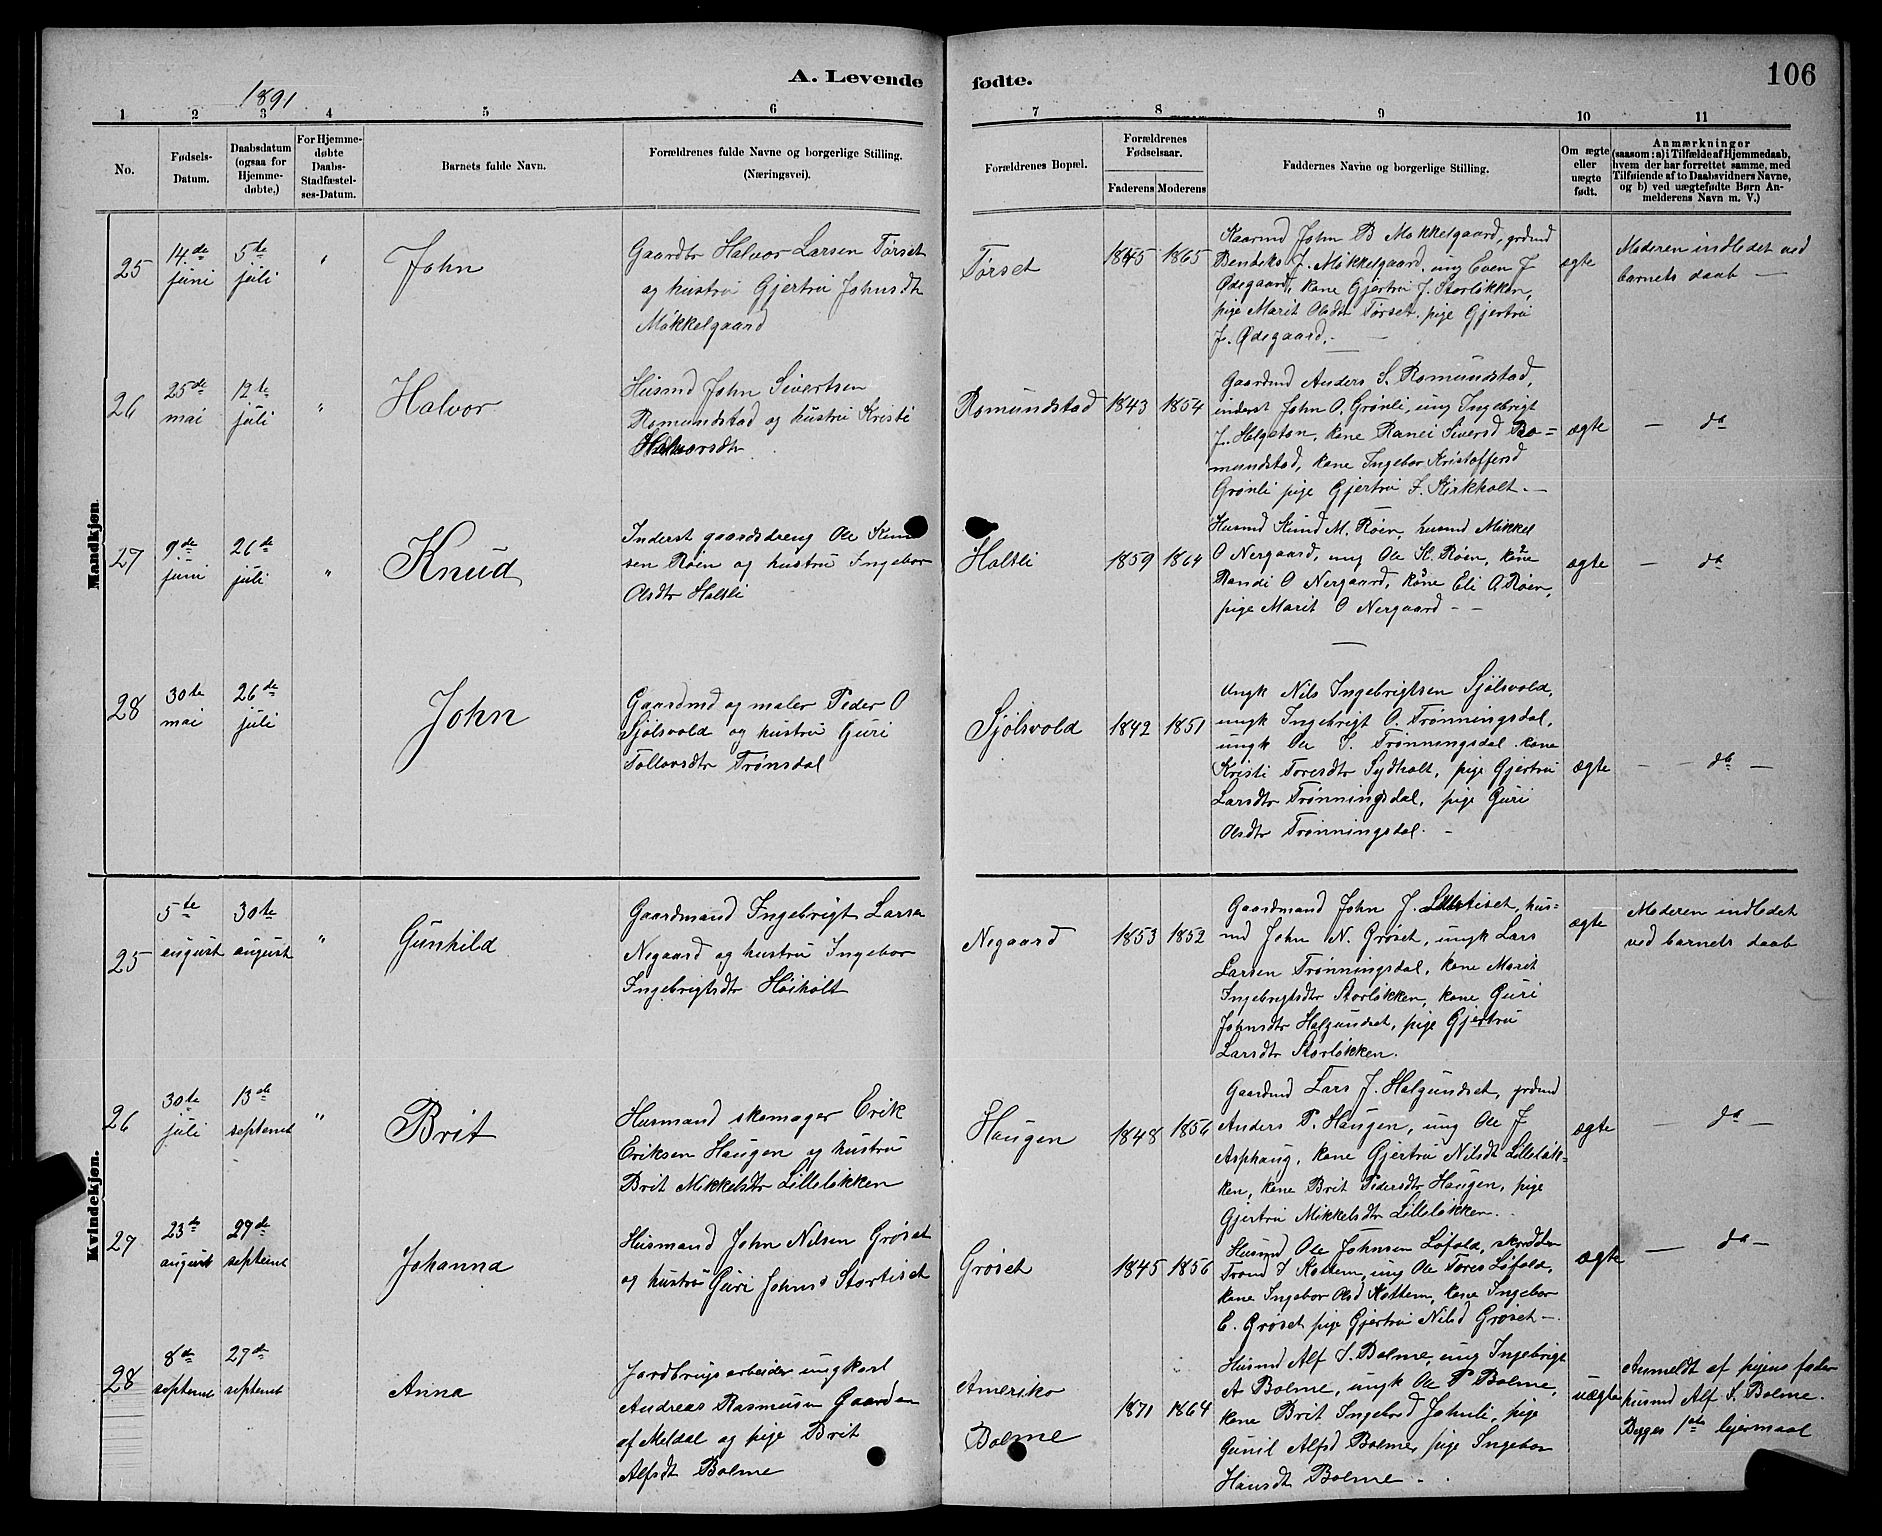 A. Levende
fødte.
106
1891
1
2
3
4
5
6
7
8
9
10
11
No.
Fødsels-
Datum.
Daabsdatum
(ogsaa for
Hjemme-
døbte.)
For Hjemme-
døbte
Daabs-
Stadfæstel-
ses-Datum.
Barnets fulde Navn.
Forældrenes fulde Navne og borgerlige Stilling.
(Næringsvei).
Forældrenes Bopæl.
Forældrenes
Fødselsaar.
Faderens
Moderens
Faddernes Navne og borgerlige Stilling.
Om ægte
eller
uægte
født.
Anmærkninger
(saasom: a) i Tilfælde af Hjemmedaab,
hvem der har forrettet samme, med
Tilføiende af to Daabsvidners Navne,
og b) ved uægtefødte Børn An-
melderens Navn m. V.)
Mandkjøn.
25
14de
juni
5te
juli
"
John
Gaardbr Halvor Larsen Tørset
og hustru Gjertru Johnsdtr
Mökkelgaard
Tørset
1845
1865
Kaarmd John B Mökkelgaard, grdmd
Bendeks J. Mökkelgaard, ung Even J
Ødegaard, kone Gjertru J. Storløkken,
pige Marit Olsdtr Tørset, pige Gjertru
J. Ødegaard. —
ægte
Moderen indledet ved
barnets daab —
26
25de
mai
12te
juli
"
Halvor
Husmd John Sivertsen
Romundstad og hustru Kristi
Halvorsdtr
Romundstad
1843
1854
Gaardmd Anders S. Romundstad,
inderst John O. Grønli, ung Ingebrigt
J. Helgeton, kone Ranei Siversd Ro=
mundstad, kone Ingebor Kristoffersd
Grønli pige Gjertru S. Kirkholt. —
ægte
— do
27
9de
juni
26de
juli
"
Knud
Inderst gaardsdreng Ole Knud
sen Röen og hustru Ingebor
Olsdtr Holtli
Holtli
1859
1864
Husmd Knud M. Røen, husmd Mikkel
O Nergaard, ung Ole K. Røen, kone
Randi O Nergaard, kone Eli O. Røen,
pige Marit O Nergaard — —
ægte
— do
28
30te
mai
26de
juli
John
Gaardmd og maler Peder O
Sjölsvold og hustru Guri
Tollovsdtr Trønsdal
Sjölsvold
1842
1851
Ungk Nils Ingebrigtsen Sjölsvold,
ungk Ingebrigt O. Trønningsdal,
ungk Ole S. Trønningsdal. kone
Kristi Toresdtr Sydholt, pige Gjertru
Larsdtr Trønningsdal, pige Guri
Olsdtr Trønningsdal. —
ægte
— do —
Kvindekjøn.
25
5te
august
30te
august
"
Gunhild
Gaardmand Ingebrigt Larsen
Negaard og hustru Ingebor
Ingebrigtsdtr Höiholt
Negaard
1853
1852
Gaardmand John J. Stortiset, hus=
md John N. Grøset, ungk Lars
Larsen Trønningsdal, kone Marit
Ingebrigtsdtr Storløkken, kone Guri
Johnsdtr Halgundset, pige Gjertru
Larsdtr Storløkken.
ægte
Moderen indledet
ved barnets daab
26
30te
juli
13de
septembr
"
Brit
Husmand skomager Erik
Eriksen Haugen og hustru
Brit Mikkelsdtr Lilleløkken
Haugen
1848
1856
Gaardmd Lars J. Halgundset, grdmd
Anders P. Haugen, ung Ole J
Asphaug, kone Gjertru Nilsdt Lilleløk=
ken, kone Brit Pedersdtr Haugen, pige
Gjertru Mikkelsdtr Lilleløkken.
ægte
— do —
27
23de
august
27de
septembr
Johanna
Husmand John Nilsen Grøset
og hustru Guri Johnsd Stortiset
Grøset
1845
1856
Husmd Ole Johnsen Løfald, skrædder
Trond J Rottem, ung Ole Tores Løfald,
kone Ingebor Olsd Rottem, kone Ingebor
E. Grøset pige Gjertru Nilsd Grøset —
ægte
— do —
28
8de
septembr
27de
septembr
Anna
Jordbrugsarbeider ungkarl
Andreas Rasmusen Gaarden
af Meldal og pige Brit
Alfsdt Bolme
Ameriko
Bolme
1871
1864
Husmd Alf S. Bolme, ung Ingebrigt
A Bolme, ungk Ole P Bolme,
kone Brit Ingebrd Jahnli, pige
Gunil Alfsd Bolme, pige Ingebor
Hansdt Bolme — .
uægte
Anmeldt af pigens fader
husmd Alf S. Bolme.
Begges 1ste lejermaal